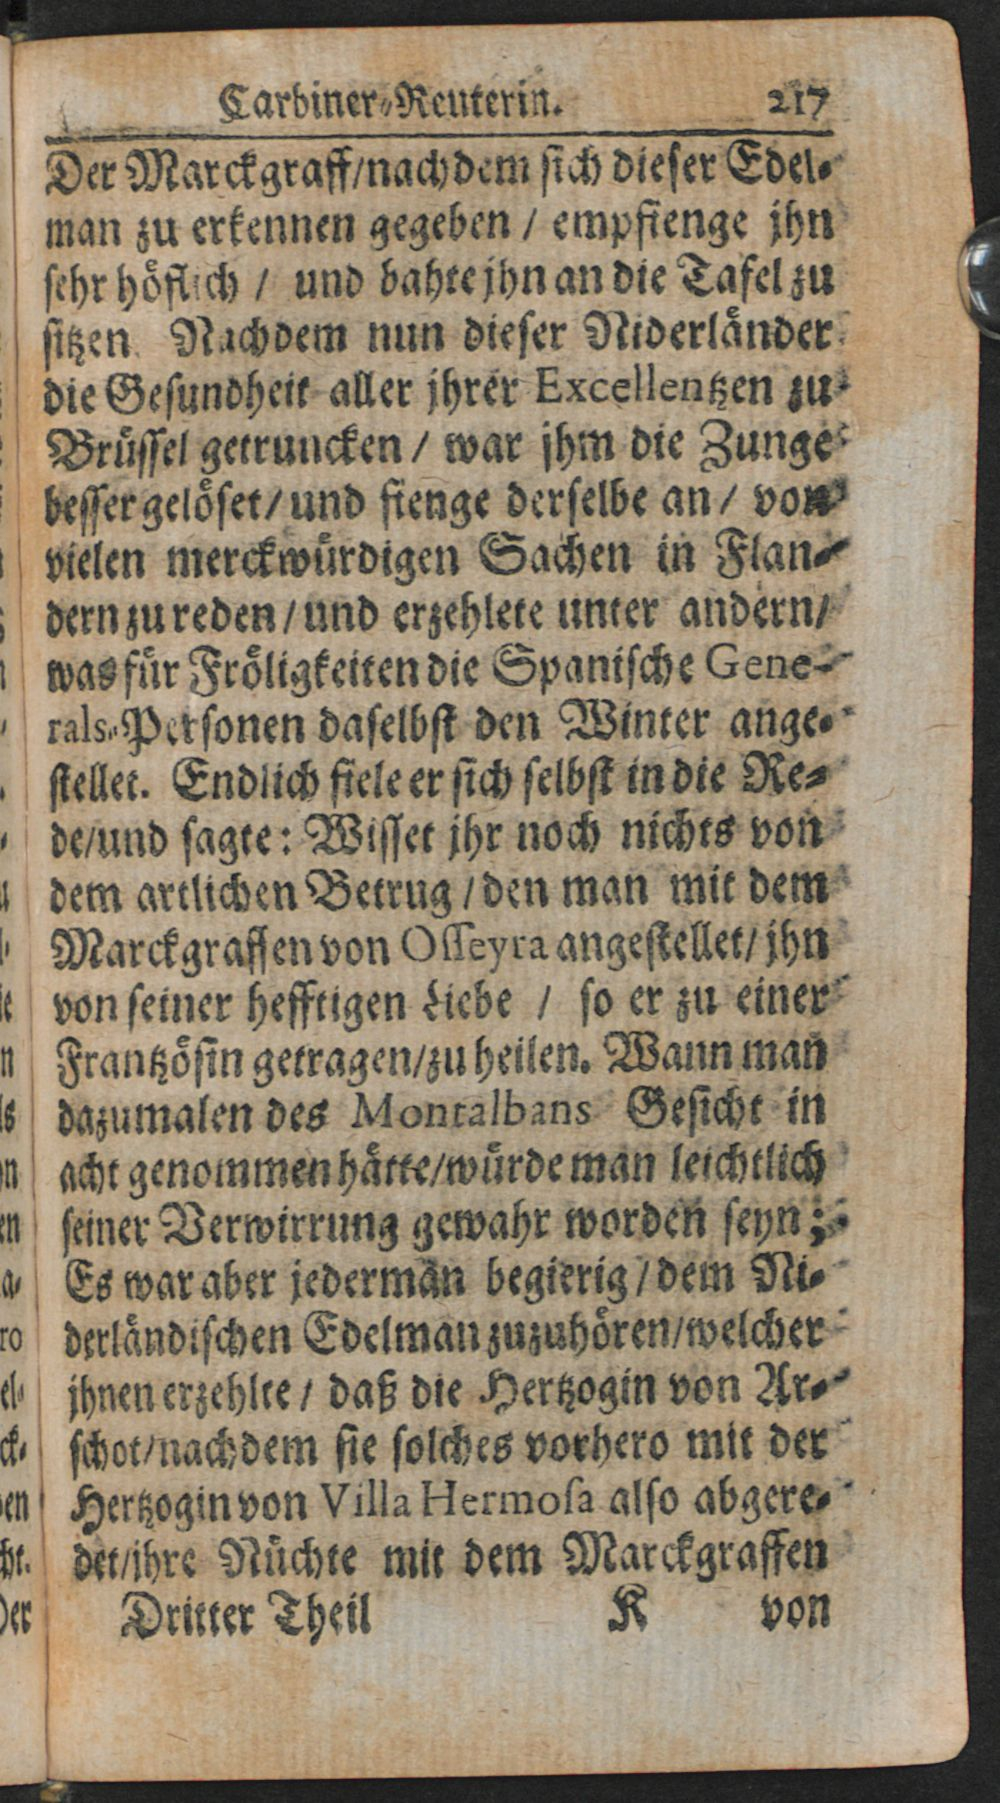 Carbiner-Reuterin. 217
Der Marckgraff/nachdem sich dieser Edel-
man zu erkennen gegeben / empfienge jhn
sehr höflich / und bahte jhn an die Tafel zu
sitzen. Nachdem nun dieser Niderländer
die Gesundheit aller jhrer Excellentzen zu
Brüssel getruncken / war jhm die Zunge
besser gelöset/ und fienge derselbe an / von
vielen merckwürdigen Sachen in Flan-
dern zu reden / und erzehlete unter andern/
was für Fröligkeiten die Spanische Gene-
rals-Personen daselbst den Winter ange-
stellet. Endlich fiele er sich selbst in die Re-
de/und sagte: Wisset jhr noch nichts von
dem artlichen Betrug / den man mit dem
Marckgraffen von Osseyra angestellet/ jhn
von seiner hefftigen Liebe / so er zu einer
Frantzösin getragen/zu heilen. Wann man
dazumalen des Montalbans Gesicht in
acht genommen hätte/würde man leichtlich
seiner Verwirrung gewahr worden seyn;
Es war aber jederman begierig / dem Ni-
derländischen Edelman zuzuhören/welcher
jhnen erzehlte / daß die Hertzogin von Ar-
schot/nachdem sie solches vorhero mit der
Hertzogin von Villa Hermosa also abgere-
det/jhre Nüchte mit dem Marckgraffen
Dritter Theil K von